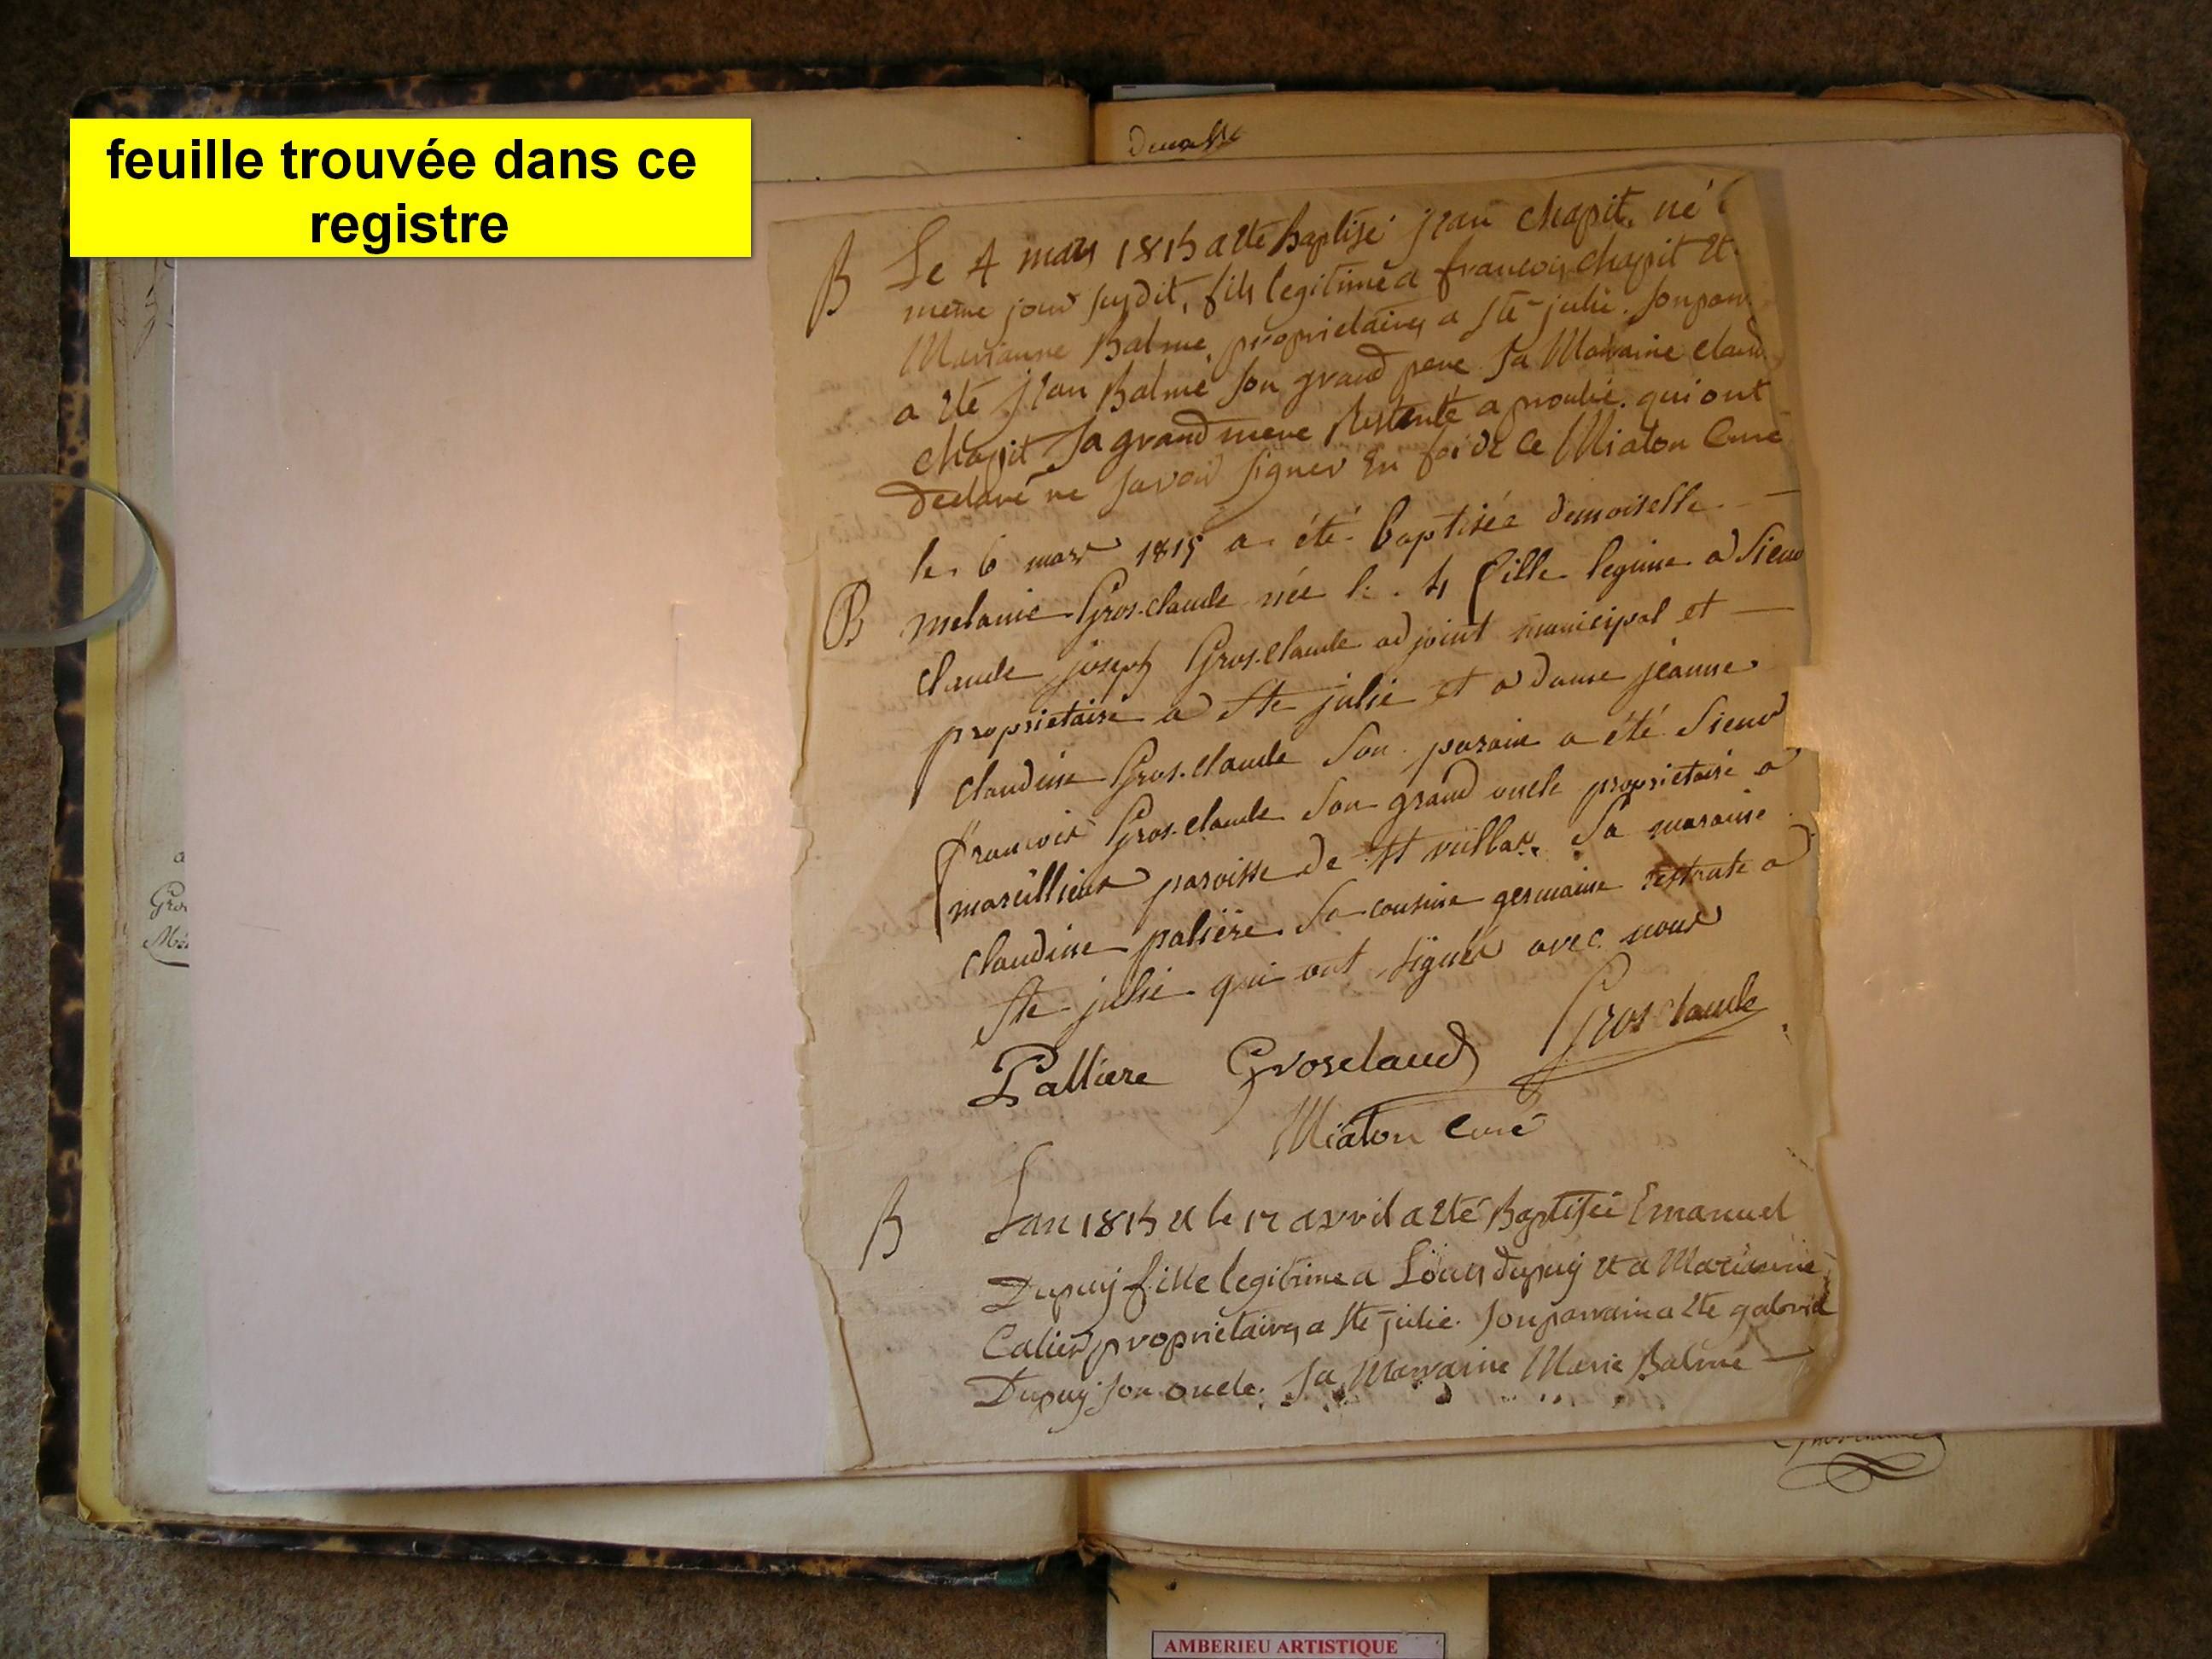 feuille trouvée dans ce
registre
B Le 4 mars 1815 a ete Baptisé jean chapit, né
meme jour susdit, fils legitime a francois chapit et
Marianne Balme proprietaires a Ste julie. Son parr
a ete jean Balme son grand pere Sa Marraine claud
chapit Sa grand mere Restante a proulie. qui ont
declaré ne savoir signer En foi de ce Miaton Curé
le 6 mars 1815 a été baptisée demoiselle
B melanie Gros.claude née le 4 fille legime a Sieur
claude joseph Gros.claude adjoint municipal et
proprietaire a Ste julie et a dame jeanne
claudine Gros.claude Son parain a été Sieur
francois Gros.claude Son grand oncle proprietaire a
marcillieux paroisse de St vullas. Sa maraine
claudine palière Sa cousine germaine restante a
Ste julie qui ont signés avec nous
Palliere Grosclaud Gros claude
Miaton Curé
B Lan 1815 et le 12 avril a ete Baptisée Emanuel
Dupuy fille legitime a Louis dupuy et a Marianne
Calier proprietaires a Ste julie. Son parrain a ete gabriel
Dupuy Son oncle. Sa Marraine Marie Balme
AMBERIEU ARTISTIQUE